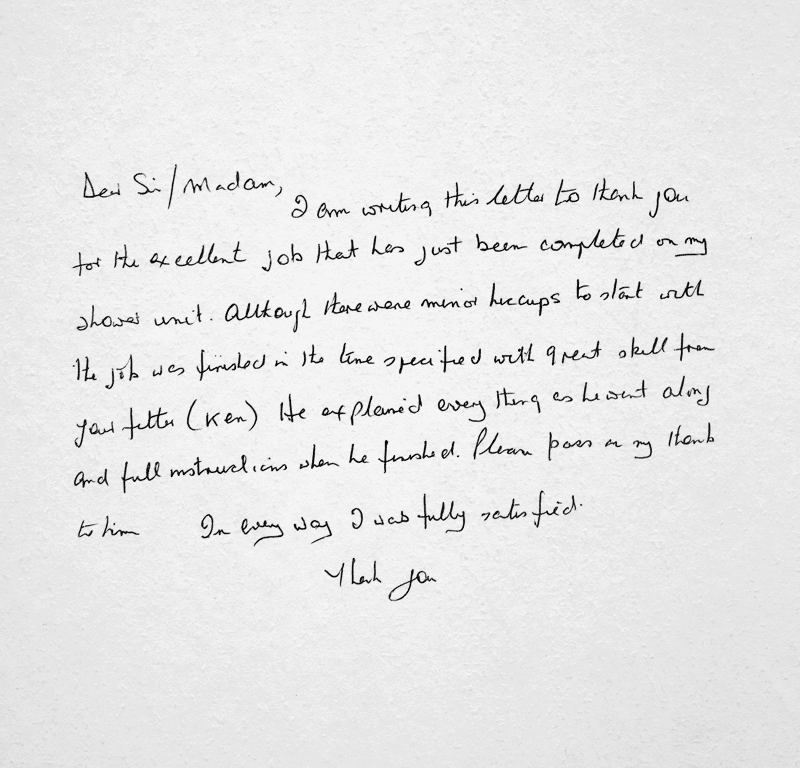 Dear Sir/Madam,
I am writing this letter to thank you
for the excellent job that has just been completed on my
shower unit. Although there were minor hiccups to start with
the job was finished in the time specified with great skill from
your fitter (Ken) He explained every thing as he went along
and full instructions when he finished. Please pass on my thanks
to him In every way I was fully satisfied.
Thank you